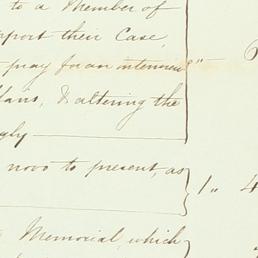 to a Member of
support their Case,
pray for an interview "
Plans, & altering the
gly
novo to present, as
1 " 4
Memorial, which